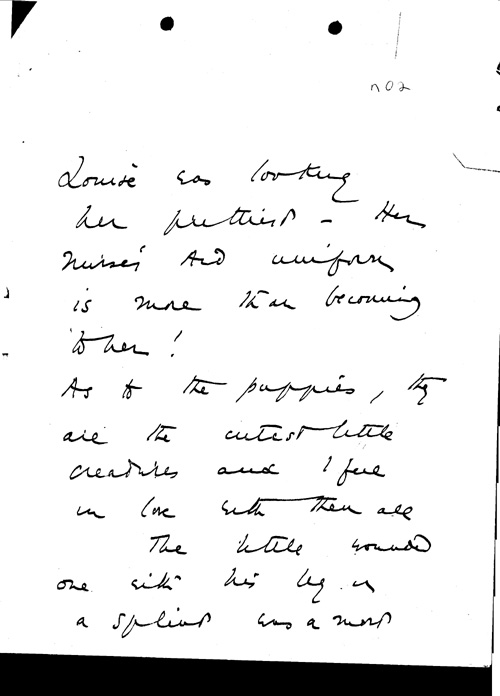 no2
Louise was looking
her prettiest - Her
Nurse's Aid uniform
is more than becoming
to her!
As to the puppies, they
are the cutest little
creatures and I fell
in love with them all
The little wounded
one with his leg in
a splint was a most